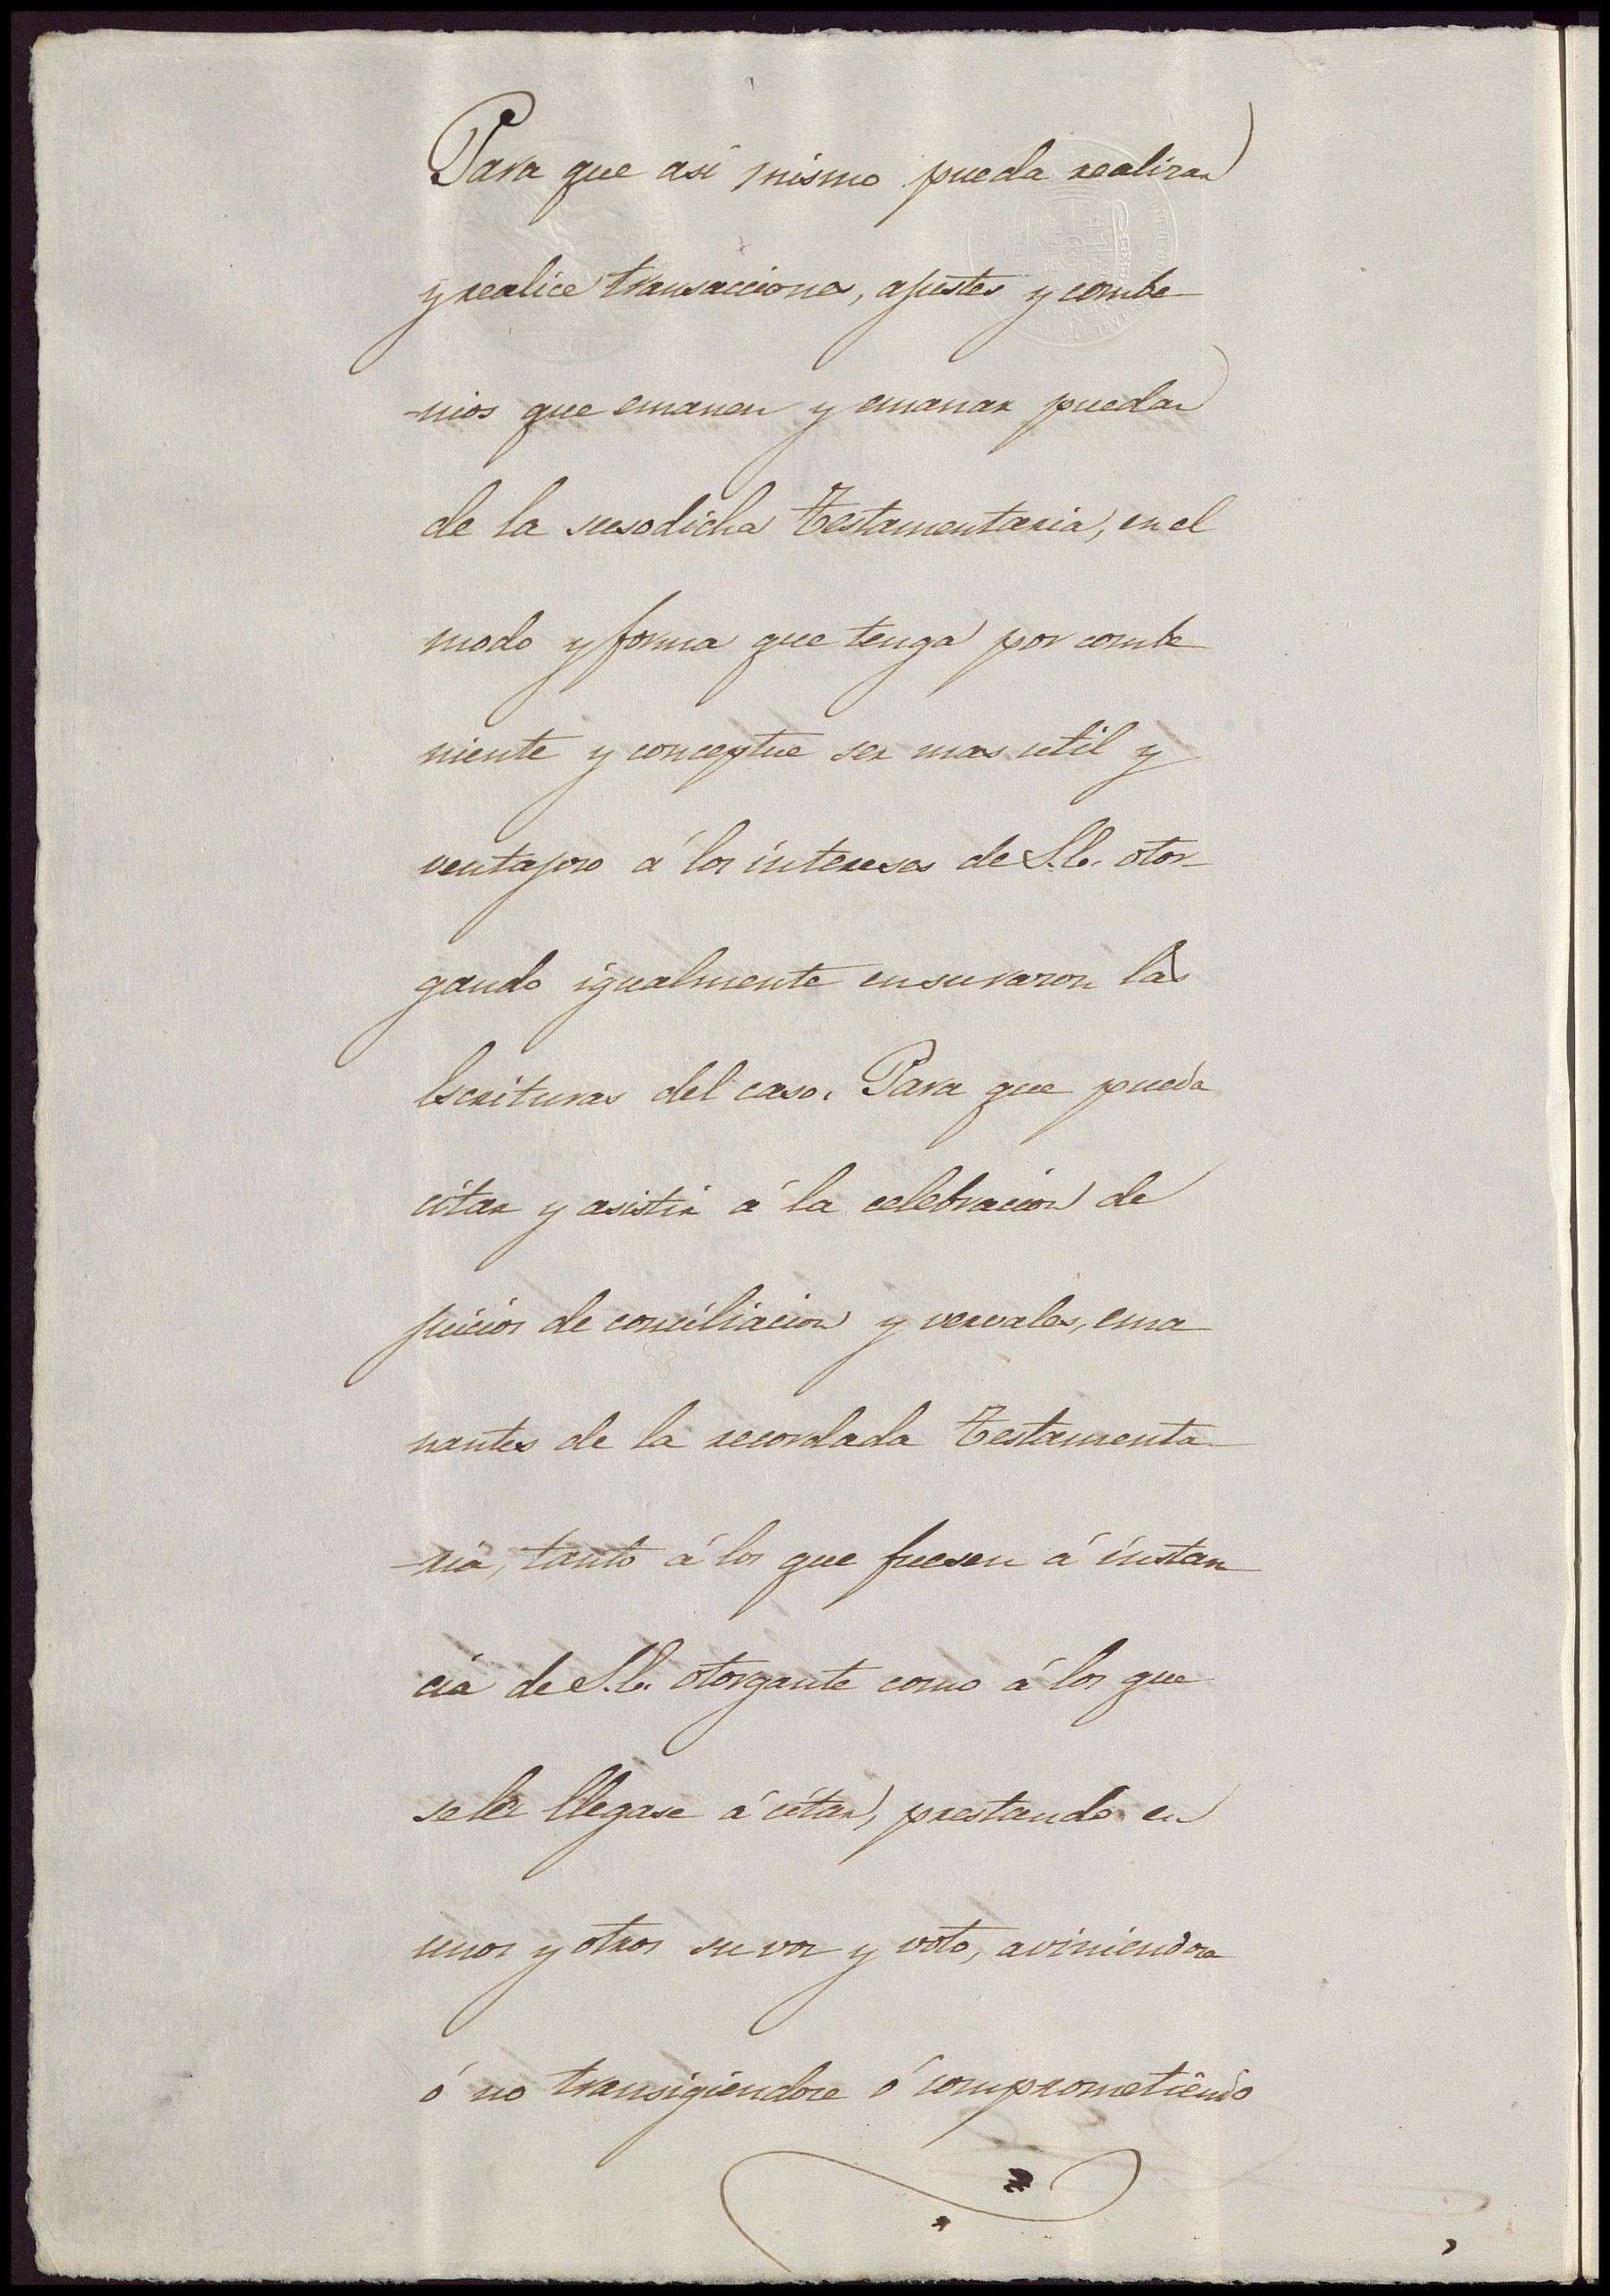 Para que asi mismo pueda realizar
y realice transacciones, ajustes y combe
-nios que emanen y emanar puedan
de la susodicha Testamentaria, en el
modo y forma que tenga por combe
niente y conceptue ser mas util y
ventajoso á los intereses de S.E. otor
gando igualmente en su razon las
Escrituras del caso. Para que pueda
citar y asistir á la celebracion de
juicios de conciliacion y vervales, ema
nantes de la recordada Testamenta
-ria, tanto á los que fuesen á instan
cia de S.E. otorgante como á los que
se le llegase á citar, prestando en
unos y otros su voz y voto, aviniendose
ó no transigiendose ó comprometiendo